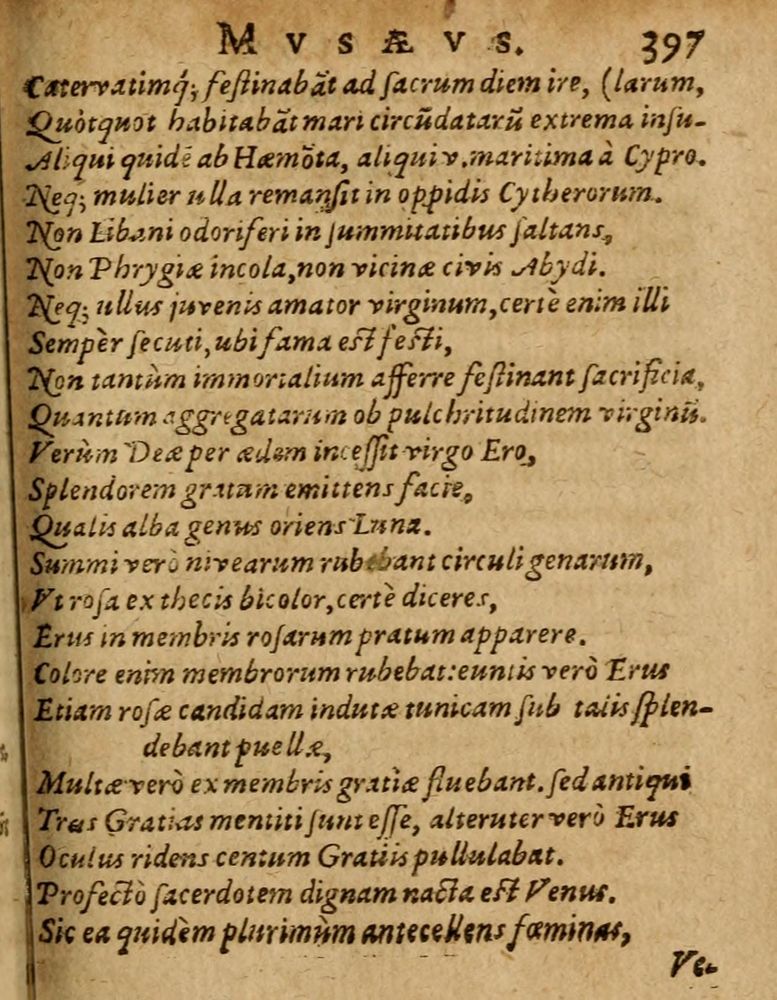 MVSÆVS. 397
Catervatimq́; feſtinabāt ad ſacrum diem ire, (larum,
Quòtquot habitabāt mari circūdatarū extrema inſu-
Aliqui quidē ab Hæmōta, aliqui v. maritima à Cypro.
Neq; mulier ulla remanſit in oppidis Cytherorum.
Non Libani odoriferi in ſummitatibus ſaltans,
Non Phrygiæ incola, non vicinæ civis Abydi.
Neq; ullus juvenis amator virginum, certè enim illi
Sempèr ſecuti, ubi fama eſt feſti,
Non tantùm immortalium afferre feſtinant ſacrificia,
Quantum aggregatarum ob pulchritudinem virginū.
Verùm Deæ per ædem inceſſit virgo Ero,
Splendorem gratam emittens facie,
Qualis alba genus oriens Luna.
Summi verò nivearum rubebant circuli genarum,
Vt roſa ex thecis bicolor, certè diceres,
Erus in membris roſarum pratum apparere.
Colore enim membrorum rubebat: euntis verò Erus
Etiam roſæ candidam indutæ tunicam ſub talis ſplen-
debant puellæ,
Multæ verò ex membris gratiæ fluebant. ſed antiqui
Tres Gratias mentiti ſunt eſſe, alteruter verò Erus
Oculus ridens centum Gratiis pullulabat.
Profectò ſacerdotem dignam nacta eſt Venus.
Sic ea quidèm plurimùm antecellens fœminas,
Ve-